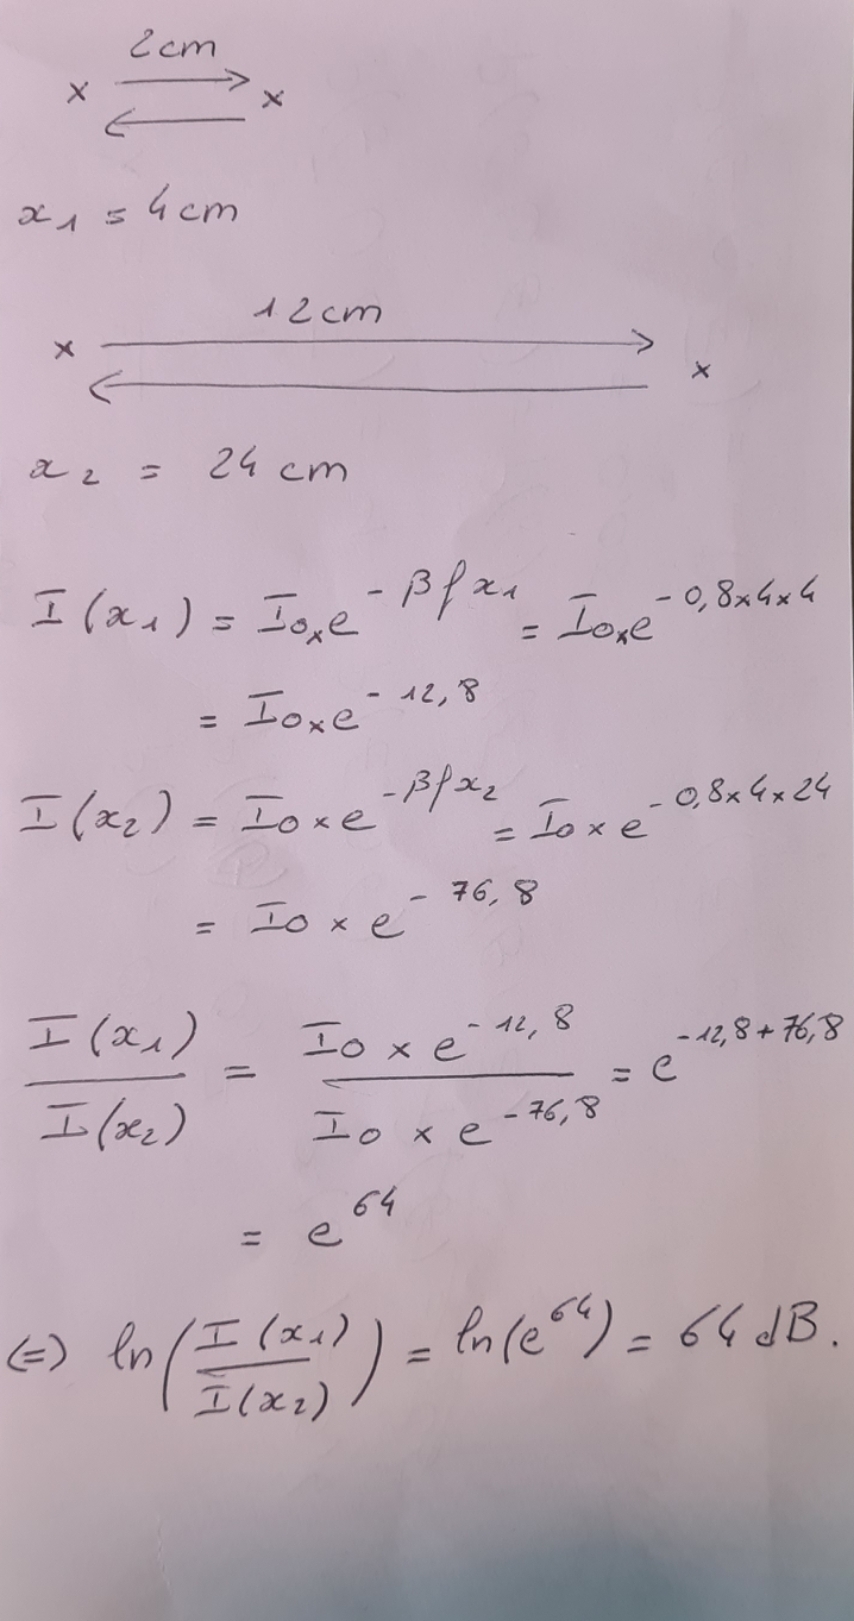 2cm
x → x
←
x₁ = 4cm
12cm
x → x
←
x₂ = 24 cm
I(x₁) = I₀ₓe^-βfx₁ = I₀ₓe^-0,8×4×4
= I₀ₓe^-12,8
I(x₂) = I₀ × e^-βfx₂ = I₀ × e^-0,8×4×24
= I₀ × e^-76,8
I(x₁)/I(x₂) = I₀ × e^-12,8/I₀ × e^-76,8 = e^-12,8+76,8
= e^64
⇔ ln(I(x₁)/I(x₂)) = ln(e^64) = 64 dB.